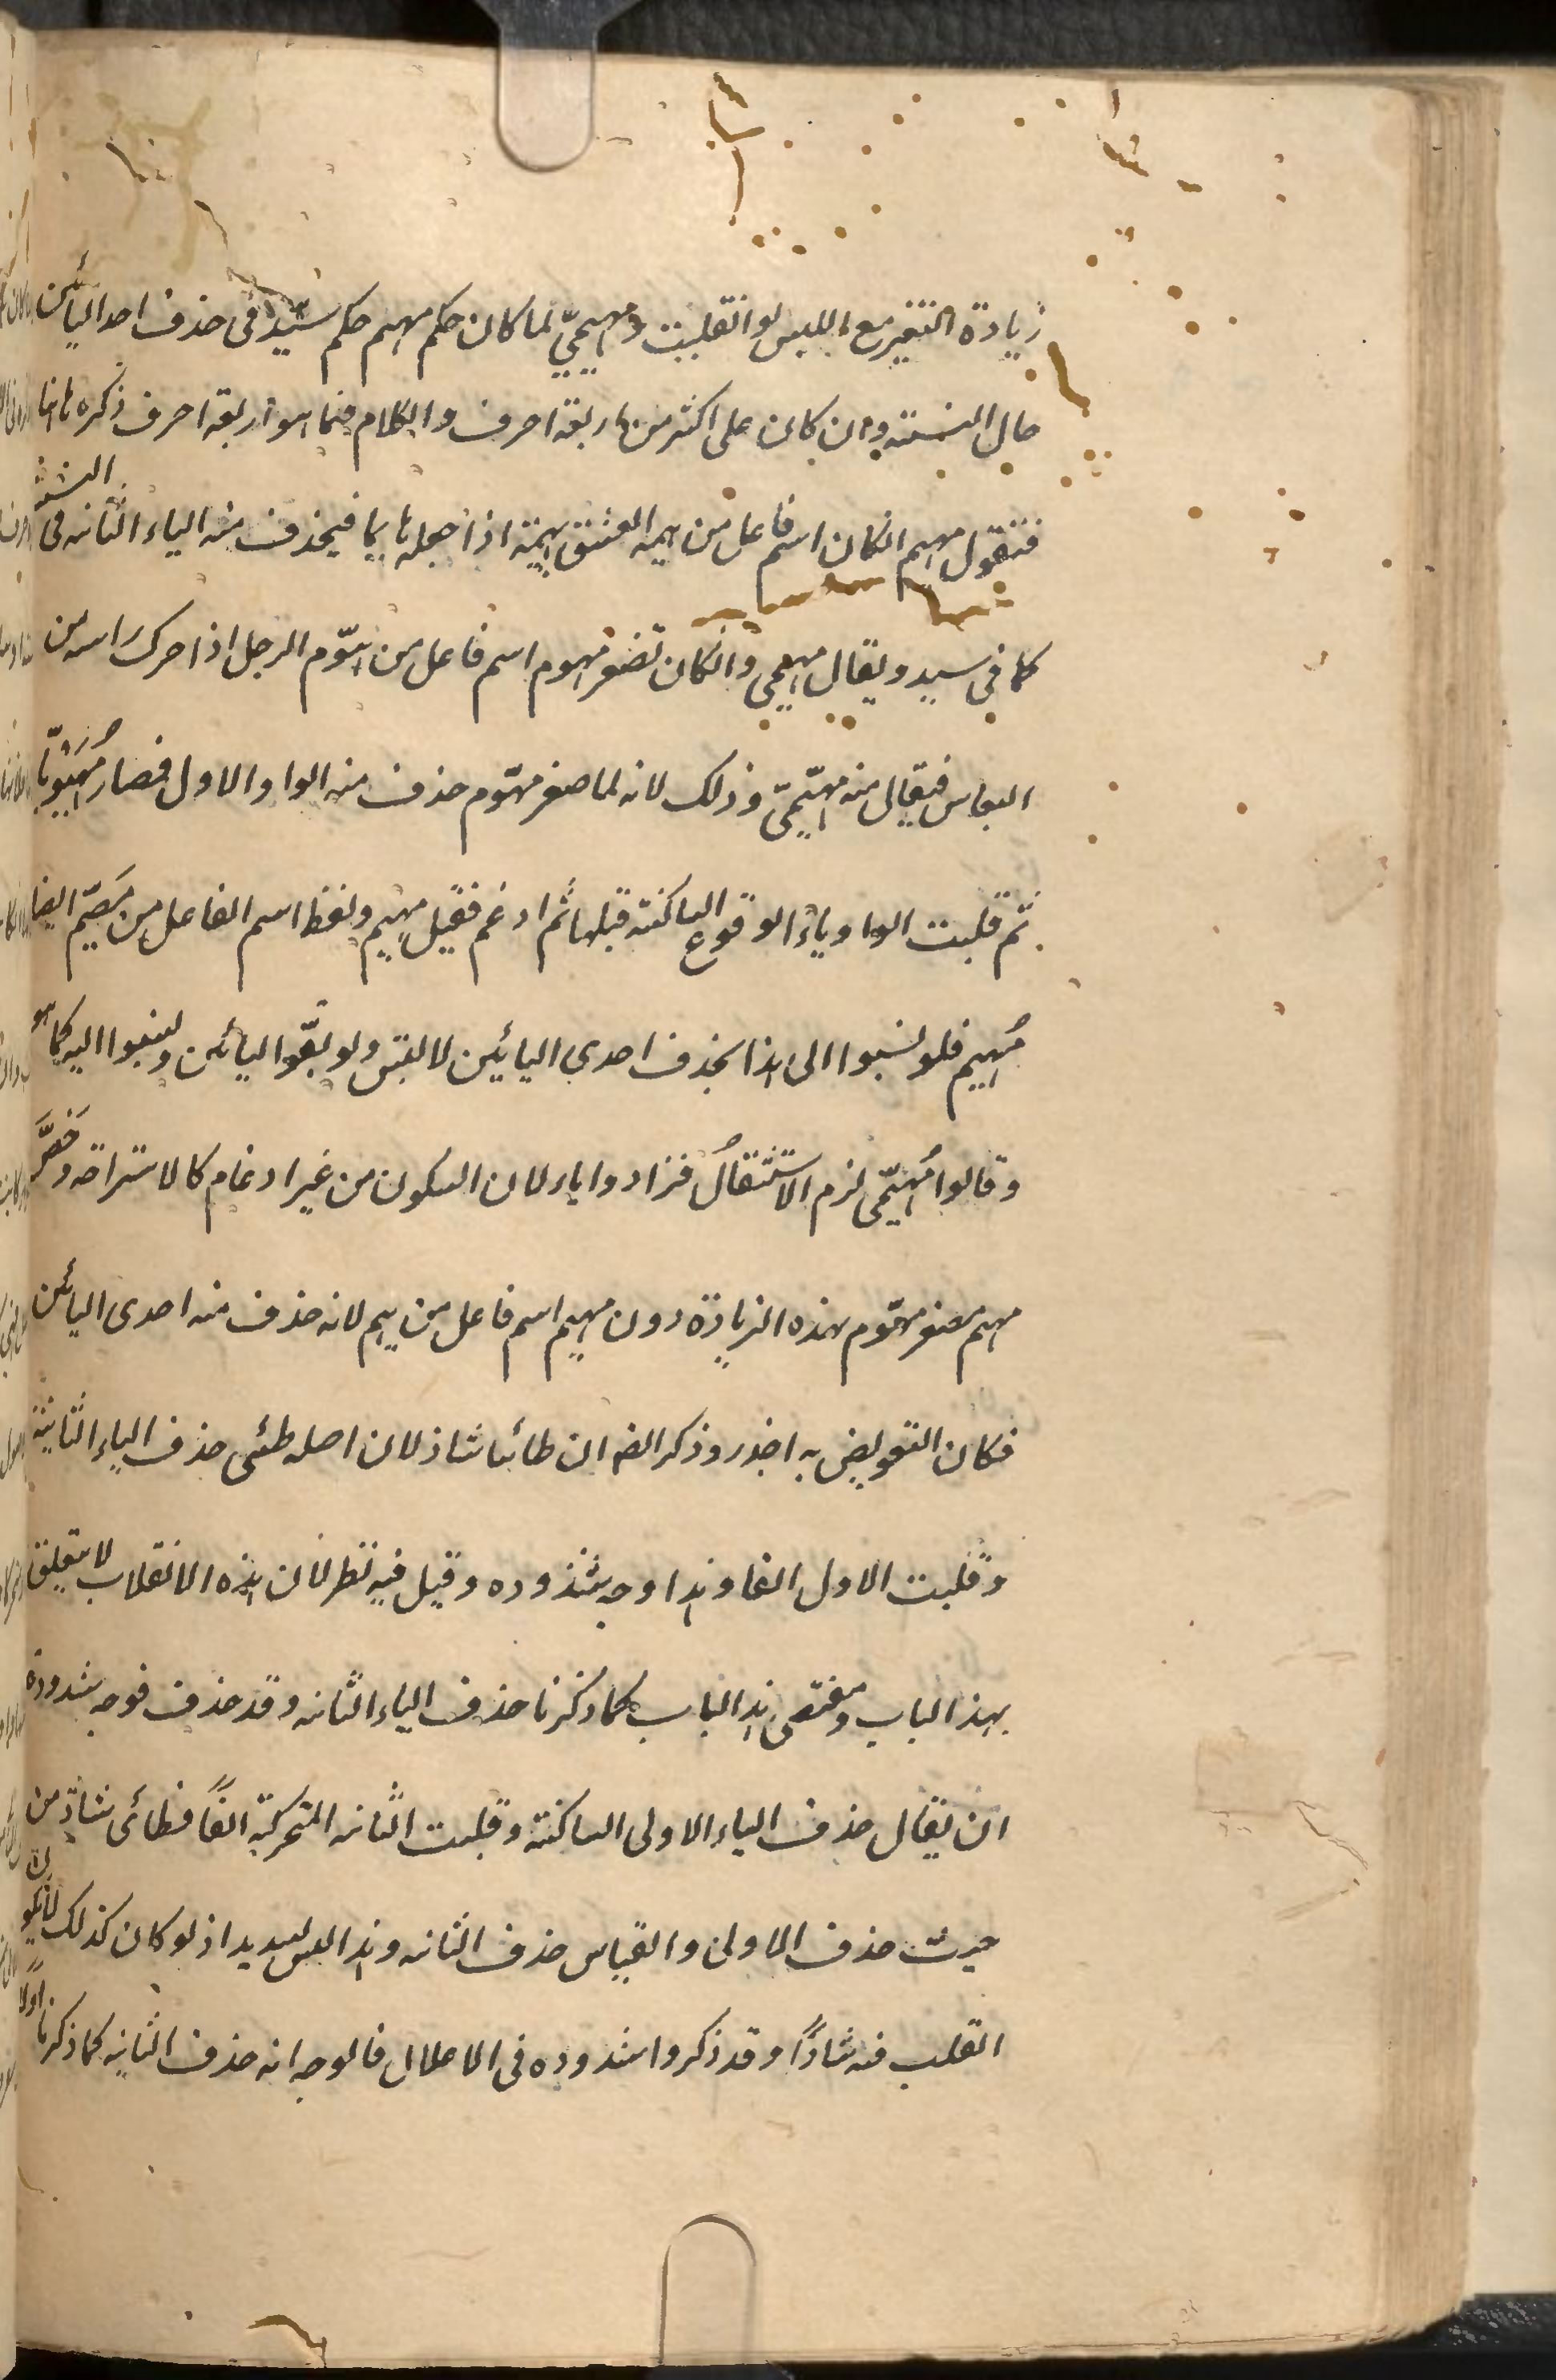 زيادة التغير مع اللبس لو انقلبت ومهيميّ لما كان حكم مهيم حكم سيّد فى حذف احد اليائين
حال النسبة وان كان على اكثر من اربعة احرف والكلام فيما هو اربعة احرف ذكره هاهنا
فنقول مهيم انكان اسم فاعل من هيمه العشق يهيمه اذا جعله هايما فيحذف منه الياء الثانيه فى النسبة
كما فى سيد ويقال مهيمى وانكان تصغر مهوم اسم فاعل من هوّم الرجل اذا حرك راسه من
النعاس فيقال منه مهيّميّ وذلك لانه لما صغر مهوّم حذف منه الواو الاول فصار مُهَيْوِمًا
ثم قلبت الواو ياء الوقوع الساكنة قبلها ثم ادغم فقيل مهيم ولفظ اسم الفاعل من هيّم ايضا
مُهيم فلو نسبوا الى هذا بحذف احدى اليائين لالتبس ولو بقّوا اليائين ونسبوا اليه كما هو
وقالوا مُهيّمى لزم الاستثقالُ فزادوا ياء لان السكون من غير ادغام كالاستراحة وخصَّ
مهيم مصغر مهوّم بهذه الزيادة دون مهيم اسم فاعل من هيم لانه حذف منه احدى اليائين
فكان التعويض به اجدر وذكر ايضا ان طائيا شاذ لان اصله طيئى حذف الياء الثانية
وقلبت الاول الفا وهذا وجه شذوذه وقيل فيه نظر لان هذه الانقلاب لا يتعلق
بهذا الباب ومقتضى هذا الباب كما ذكرنا حذف الياء الثانيه وقد حذف فوجه شذوذه
ان يقال حذف الياء الاولى الساكنة وقلبت الثانيه المتحركة الفًا فطائى شاذّ من
حيث حذف الاولى والقياس حذف الثانيه وهذا ليس بسديد اذ لو كان كذلك لا يكون
القلب فيه شاذًا وقد ذكروا شذوذه فى الاعلال فالوجه انه حذف الثانيه كما ذكرنا اولًا